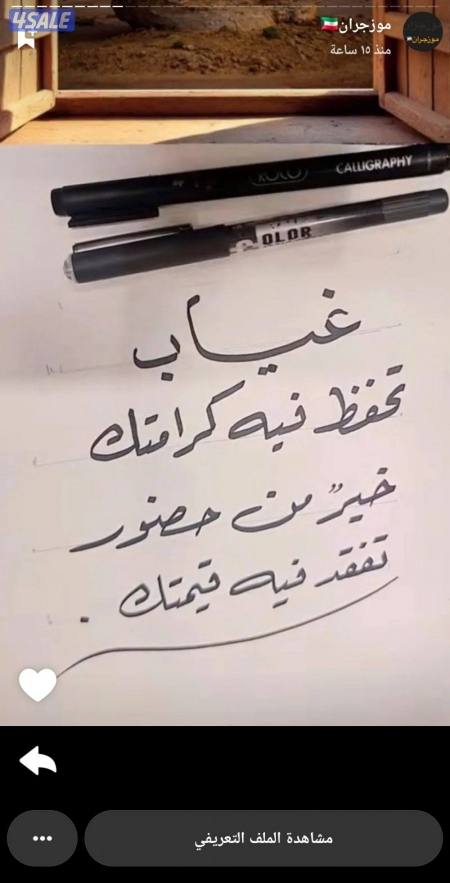 4SALE
موزجران🇰🇼
منذ ١٥ ساعة
CALLIGRAPHY
OLOR
غياب
تحفظ فيه كرامتك
خيرٌ من حضور
تفقد فيه قيمتك .
مشاهدة الملف التعريفي